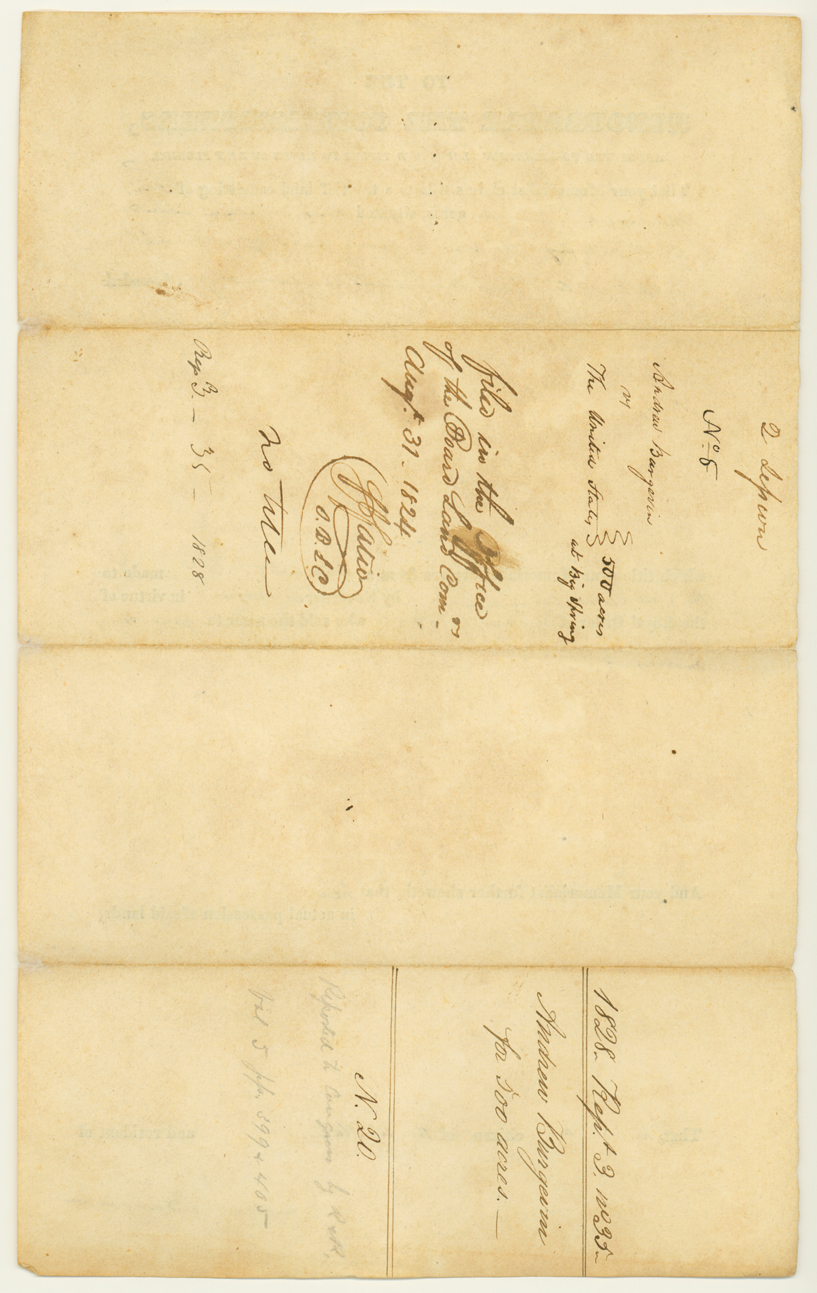 2
No 6
Andrew Burgevin
vs
The United States
500 acres
at Big Spring
Filed in the Office
of the Board Land Comrs
Augt 31 - 1824
S.B.L.C
No title
Rep 3. - 35 - 1828
1828. Rept 3. no 35-
Andrew Burgevin
for 500 acres. -
N. 20.
Reported to Congress by R & R.
Vol 5 pp. 399 & 405